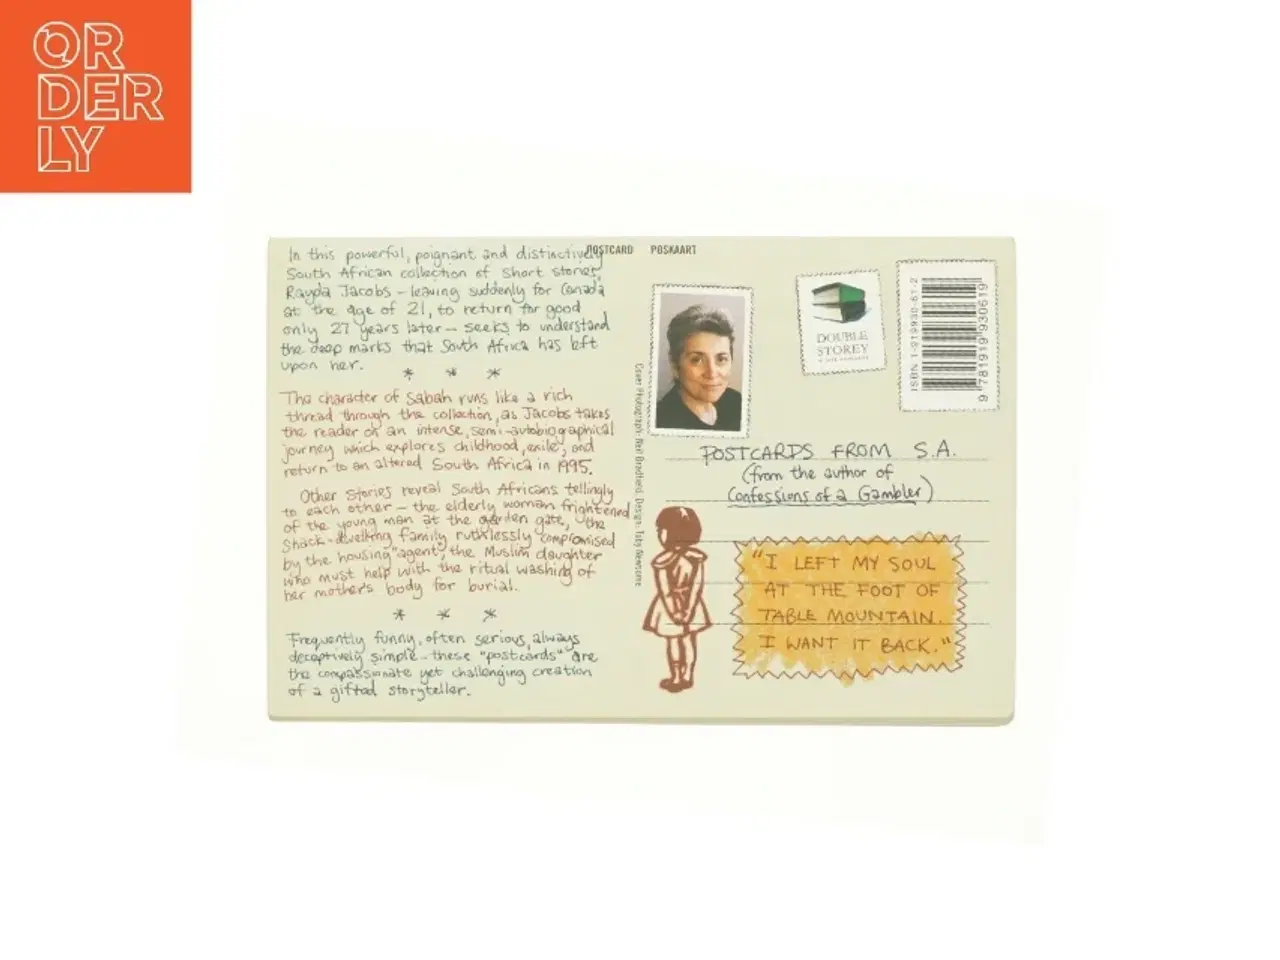 ORDERLY
In this powerful, poignant and distinctively
South African collection of short stories,
Rayda Jacobs – leaving suddenly for Canada
at the age of 21, to return for good
only 27 years later – seeks to understand
the deep marks that South Africa has left
upon her.
* * *
The character of Sabah runs like a rich
thread through the collection, as Jacobs takes
the reader on an intense, semi-autobiographical
journey which explores childhood, exile, and
return to an altered South Africa in 1995.
Other stories reveal South Africans tellingly
to each other – the elderly woman frightened
of the young man at the garden gate, the
shack-dwelling family ruthlessly compromised
by the housing agent, the Muslim daughter
who must help with the ritual washing of
her mother's body for burial.
* * *
Frequently funny, often serious, always
deceptively simple – these "postcards" are
the compassionate yet challenging creation
of a gifted storyteller.
POSTCARD POSKAART
Cover Photograph: Neil Bradfield. Design: Toby Newsome
DOUBLE
STOREY
ISBN 1-919930-61-2
9 781919 930619
POSTCARDS FROM S.A.
(from the author of
Confessions of a Gambler)
"I LEFT MY SOUL
AT THE FOOT OF
TABLE MOUNTAIN.
I WANT IT BACK."